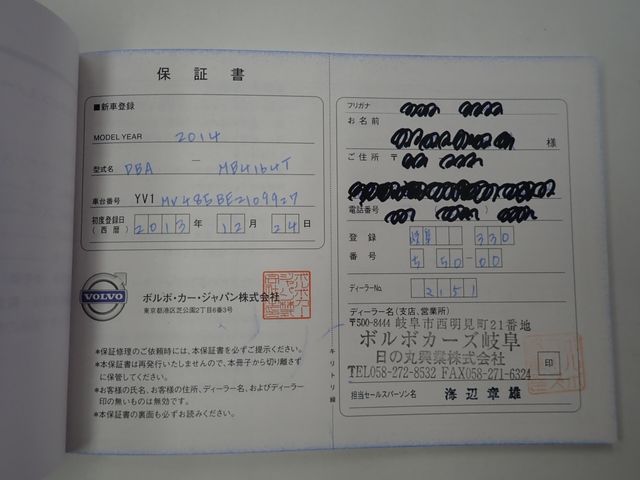 保証書
■新車登録
MODEL YEAR 2014
型式名 DBA - MB4164T
車台番号 YV1 MV485BE2109927
初度登録日 (西暦) 2013年 12月 24日
VOLVO
ボルボ・カー・ジャパン株式会社
東京都港区芝公園2丁目6番3号
*保証修理のご依頼時には、本保証書を必ずご提示ください。
*本保証書は再発行いたしませんので、本冊子から切り離さず
に保管してください。
*お客様の氏名、お客様の住所、ディーラー名、およびディーラー
印の無いものは無効です。
*本保証書の裏面も必ずお読みください。
キリトリ線
フリガナ
お名前 様
ご住所 〒
電話番号 )
登録 岐阜 330
番号 ち 50-00
ディーラーNo. 2151
ディーラー名(支店、営業所)
〒500-8444 岐阜市西明見町21番地
ボルボカーズ岐阜
日の丸興業株式会社
TEL058-272-8532 FAX058-271-6324
印
担当セールスパーソン名 海辺章雄